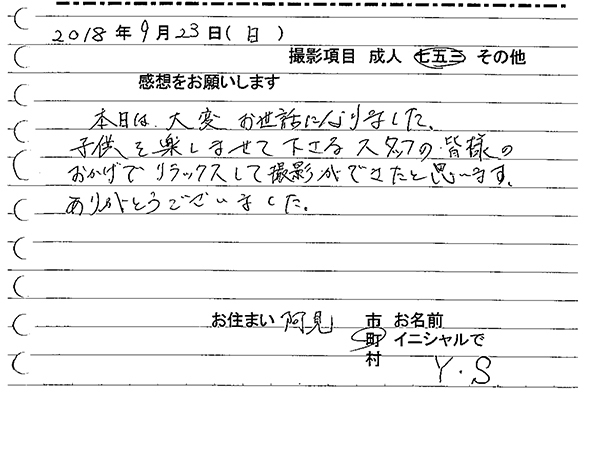 2018年9月23日(日)
撮影項目 成人 七五三 その他
感想をお願いします
本日は、大変お世話になりました。
子供を楽しませて下さるスタッフの皆様の
おかげでリラックスして撮影ができたと思います。
ありがとうございました。
お住まい 阿見 市 お名前
町 イニシャルで
村 Y.S